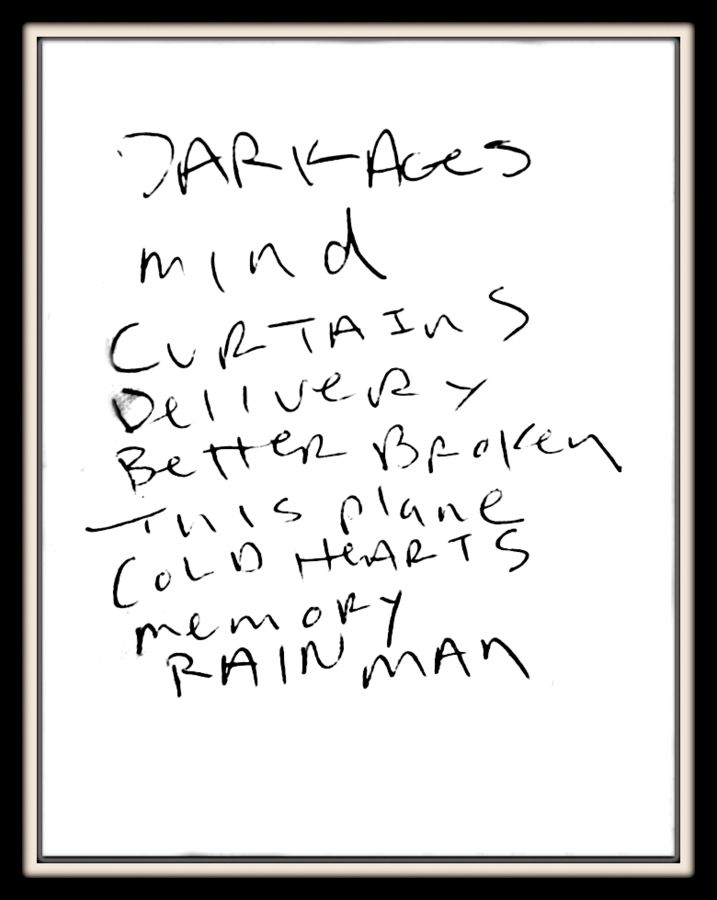 DARK AGES
mind
CURTAINS
Delivery
Better Broken
This plane
COLD HEARTS
memory
RAIN MAN